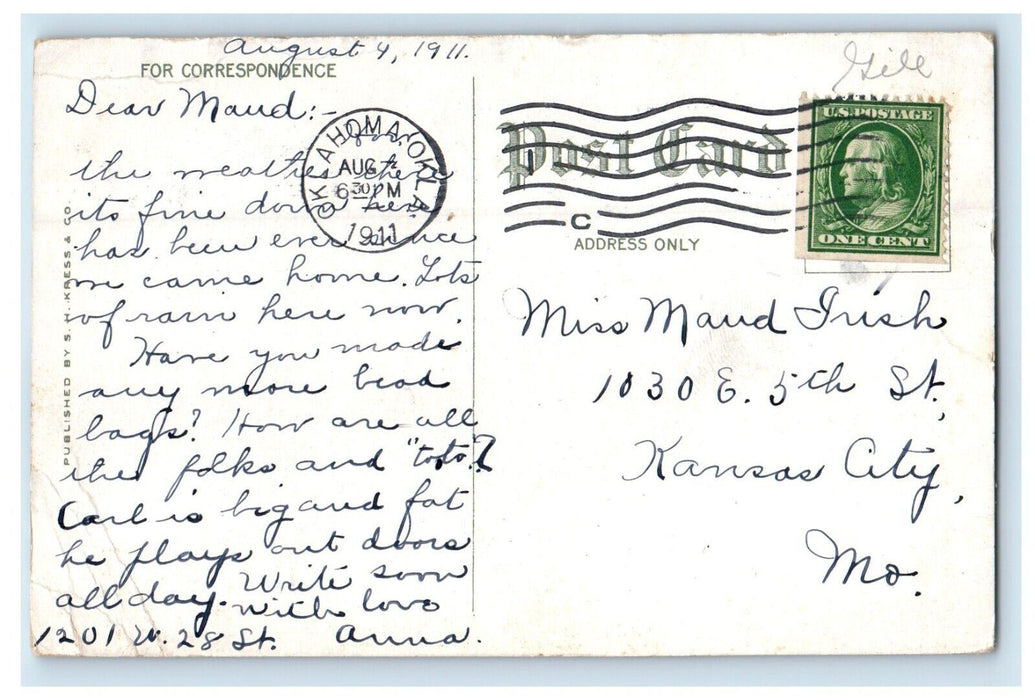 August 4, 1911.
FOR CORRESPONDENCE
Dear Maud:-
the weather there
its fine down here
has been ever since
we came home. Lots
of rain here now.
Have you made
any more bead
bags? How are all
the folks and "tots"?
Carl is big and fat
he plays out doors
all day. Write soon
with love
1201 W. 28 St. Anna.
PUBLISHED BY S. H. KRESS & CO.
OKLAHOMA, OKLA.
AUG 4
6 30 PM
1911
C
Post Card
ADDRESS ONLY
U.S. POSTAGE
ONE CENT
Miss Maud Irish
1030 E. 5th St,
Kansas City,
Mo.